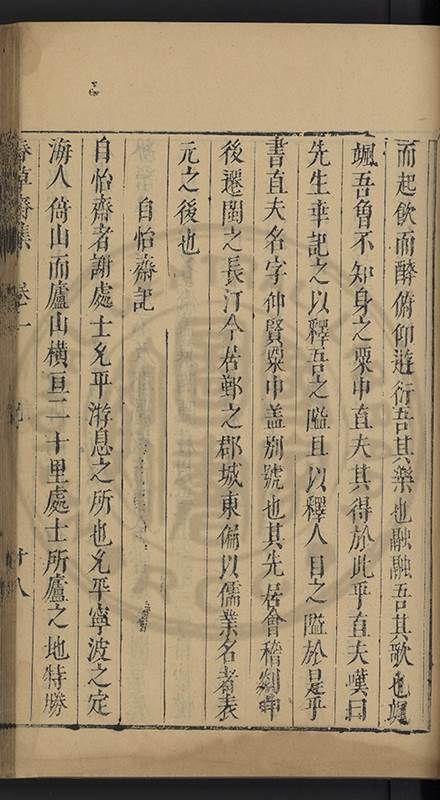 而起飲而醉俯仰遊衍吾其樂也融融吾其歌也颯
颯吾魯不知身之粟中直夫其得於此乎直夫嘆曰
先生幸記之以釋吾之隘且以釋人目之隘於是乎
書直夫名字仲賢粟中盖别號也其先居會稽剡中
後遷閩之長汀今居鄞之郡城東偏以儒業名者表
元之後也
自怡齋記
自怡齋者謝處士允平游息之所也允平寧波之定
海人倚山而廬山橫亘二十里處士所廬之地特勝
春草齋集 卷十 記 十八